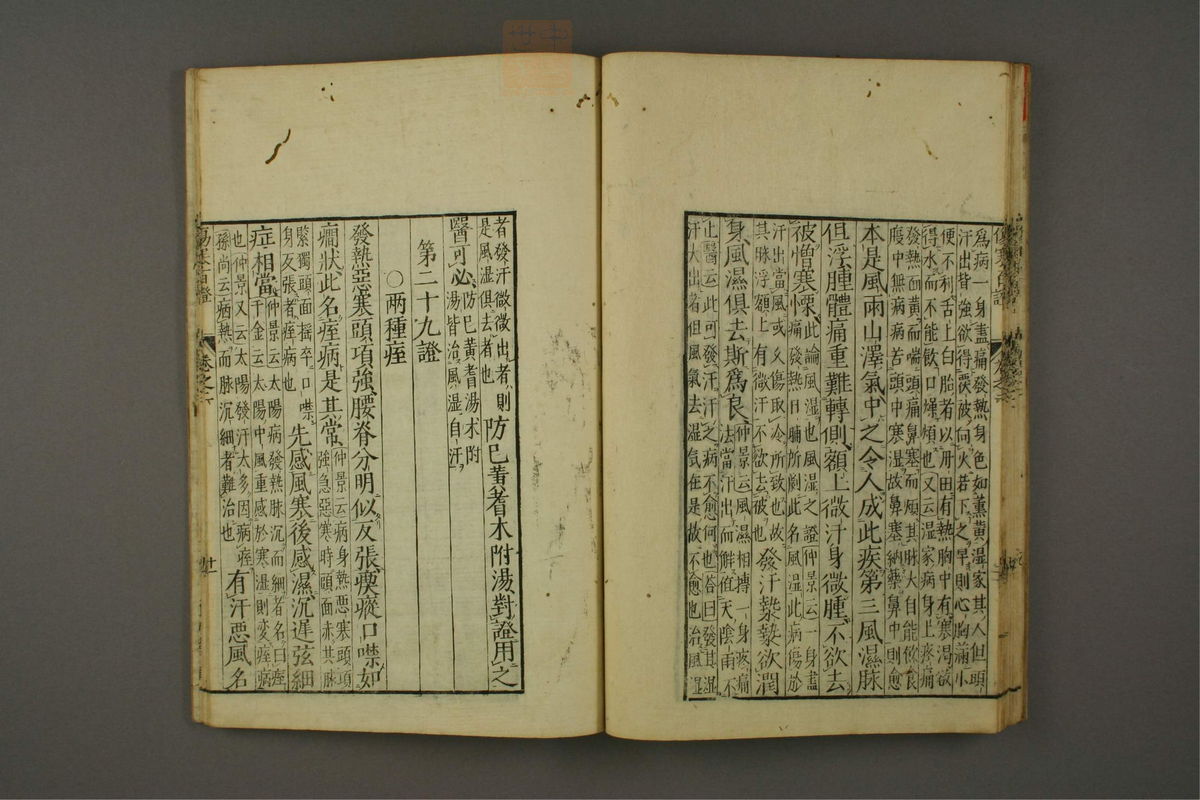 為病一身盡痛發熱身色如薰黃濕家其人但頭
汗出皆強欲得覆被向火若下之早則心胸滿小
便不利舌上白胎者以丹田有熱胸中有寒渴欲
得水而不能飲口燥煩也又云濕家病身上疼痛
發熱面黃而喘頭痛鼻塞而煩其脉大自能飲食
腹中無病病苦頭中寒濕故鼻塞納藥鼻中則愈
本是風雨山澤氣中之令人成此疾第三風濕脉
但浮腫體痛重難轉側額上微汗身微腫不欲去
被憎寒慄
此論風濕也風濕之證仲景云一身盡
痛發熱日晡所劇此名風濕此病傷於
汗出當風或久傷取冷所致也故
其脉浮額上有微汗不欲去被也
發汗漐漐欲潤
身風濕俱去斯為良
仲景云風濕相搏一身疼痛
法當汗出而解值天陰雨不
止醫云此可發汗汗之病不愈何也荅曰發其濕
汗大出者但風氣去濕氣在是故不愈也治風濕
者發汗微微出者則
是風濕俱去者也
防巳黃耆木附湯對證用之
醫可必
防巳黃耆湯术附
湯皆治風濕自汗
第二十九證
○兩種痓
發熱惡寒頭項強腰脊分明似反張瘈瘲口噤如
癇狀此名痓病是其常
仲景云病身熱惡寒頸項
強急惡寒時頭面赤其脉
緊獨頭面搖卒口噤
身反張者痓病也
先感風寒後感濕沉遲弦細
症相當
仲景云太陽病發熱脉沉而細者名曰痓
千金云太陽中風重感於寒濕則变痓病
也仲景又云太陽發汗太多因病痓
孫尚云病熱而脉沉細者難治也
有汗惡風名
卷之二
廿一